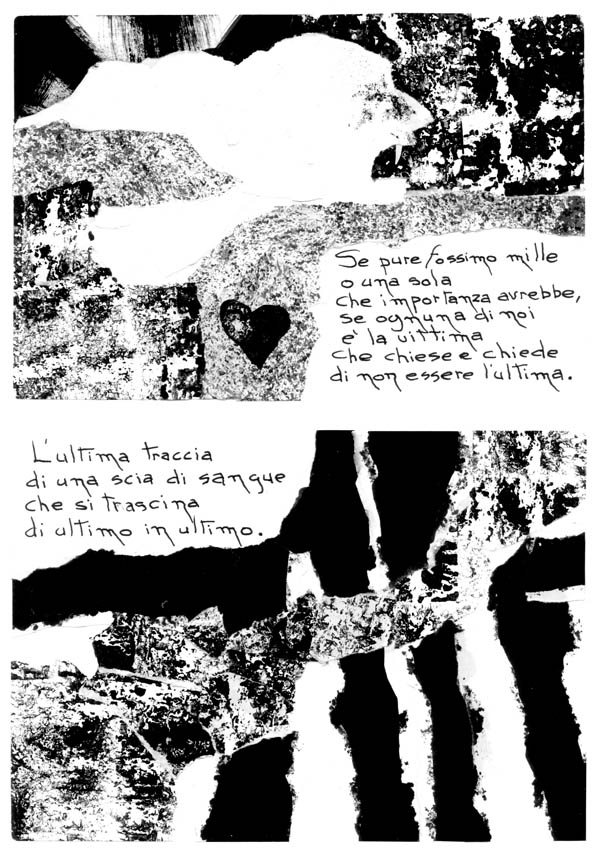 Se pure fossimo mille
o una sola
che importanza avrebbe,
se ognuna di noi
e' la vittima
che chiese e chiede
di non essere l'ultima.
L'ultima traccia
di una scia di sangue
che si trascina
di ultimo in ultimo.